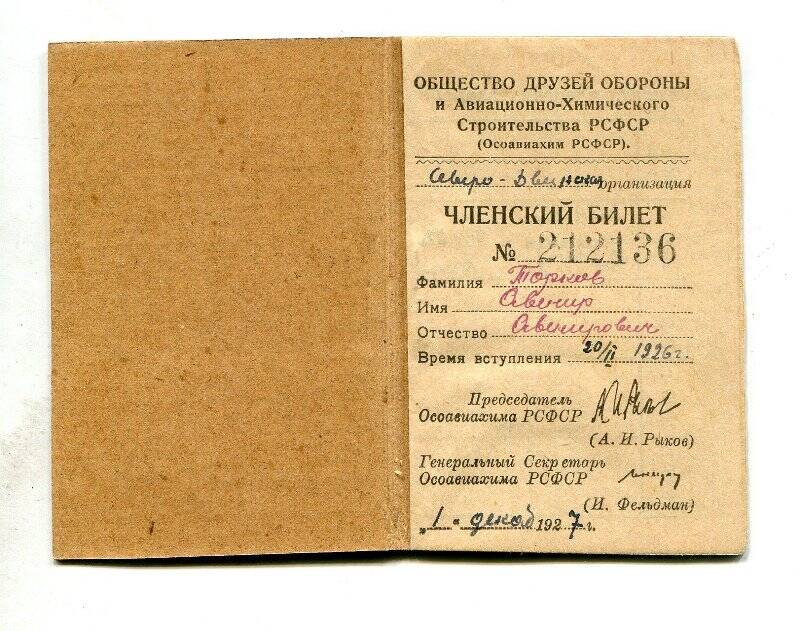 ОБЩЕСТВО ДРУЗЕЙ ОБОРОНЫ
и Авиационно-Химического
Строительства РСФСР
(Осоавиахим РСФСР).
Северо-Двинская организация
ЧЛЕНСКИЙ БИЛЕТ
№ 212136
Фамилия Торков
Имя Авенир
Отчество Авенирович
Время вступления 20/II 1926 г.
Председатель
Осоавиахима РСФСР
(А. И. Рыков)
Генеральный Секретарь
Осоавиахима РСФСР
(И. Фельдман)
„1“ декаб 1927 г.